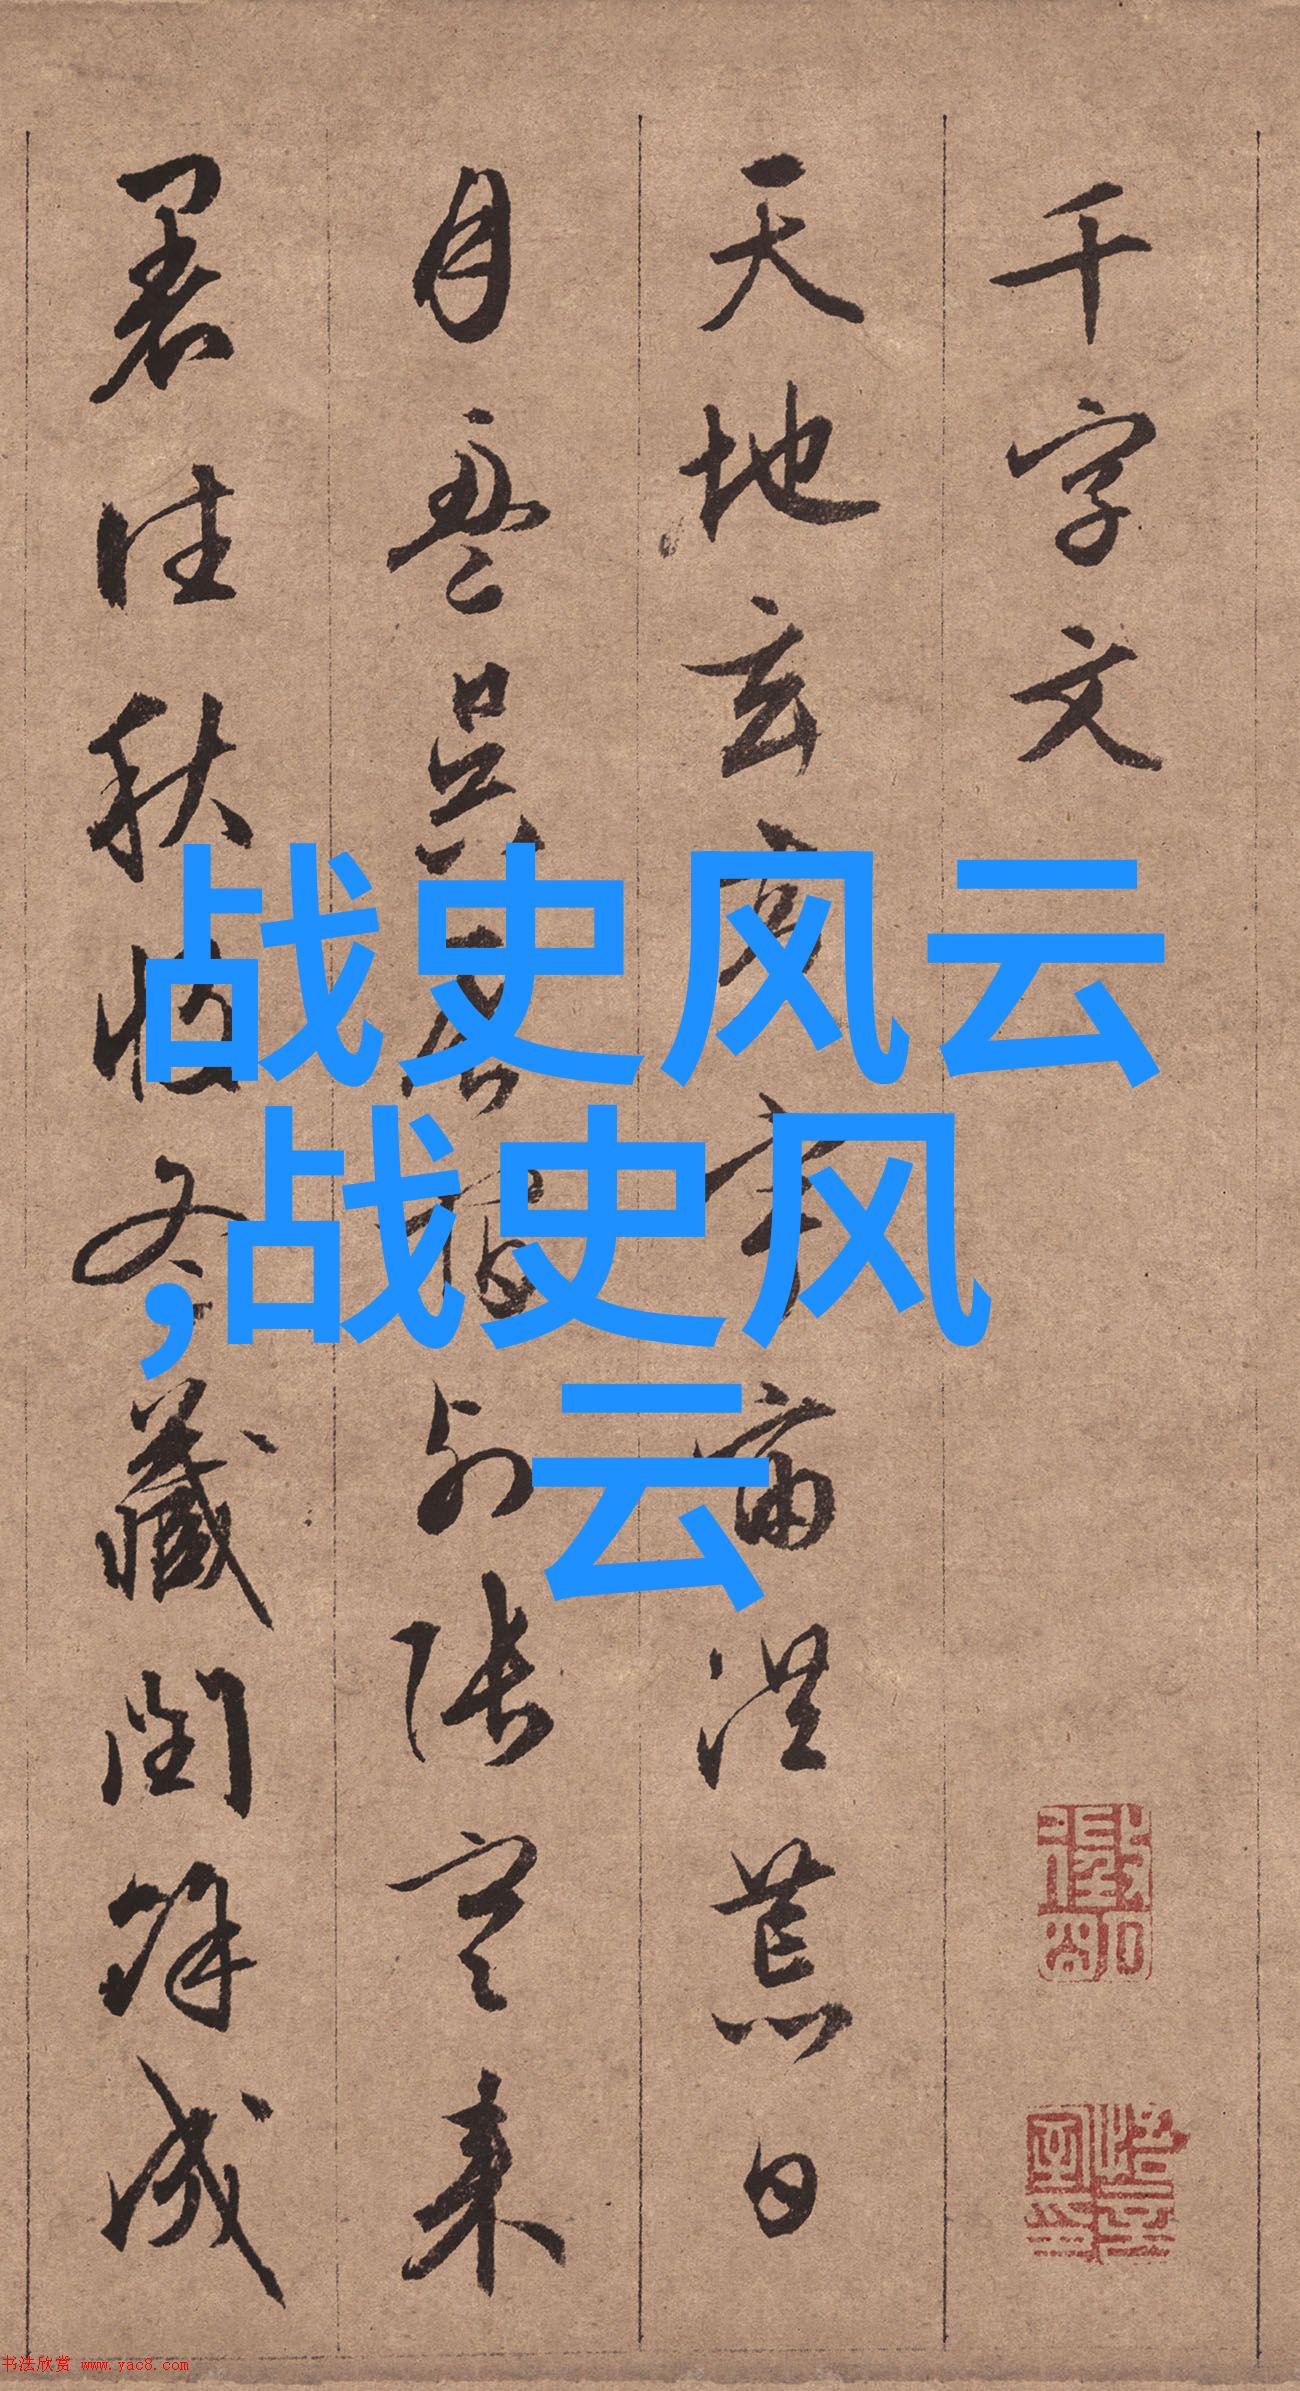 千字文
天地玄黄宇宙洪荒日
月盈昃辰宿列张寒来
暑往秋收冬藏闰馀成
战史风云
,战史风
云
书法欣赏 www.yac8.com